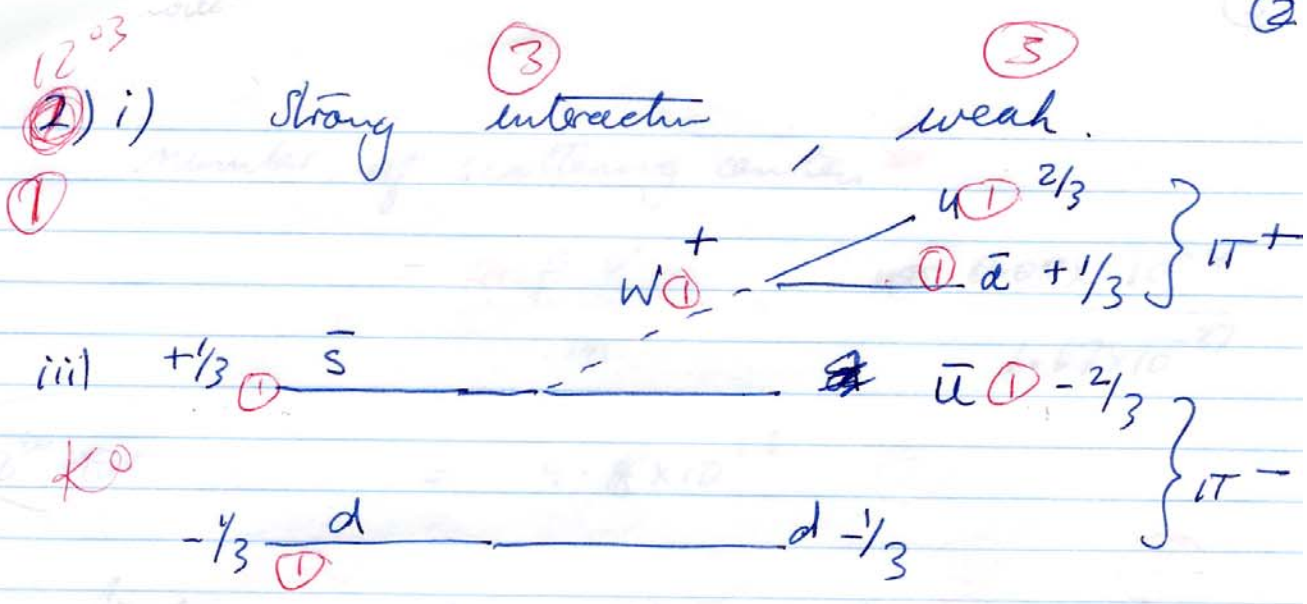 12⁰³ ③ ③
2) i) Strong interaction weak.
① u ① 2/3
+
W ① ① d̄ +1/3 } π⁺
iii) +1/3 ① s̄ ū ① -2/3
K⁰ } π⁻
-1/3 d ① d -1/3